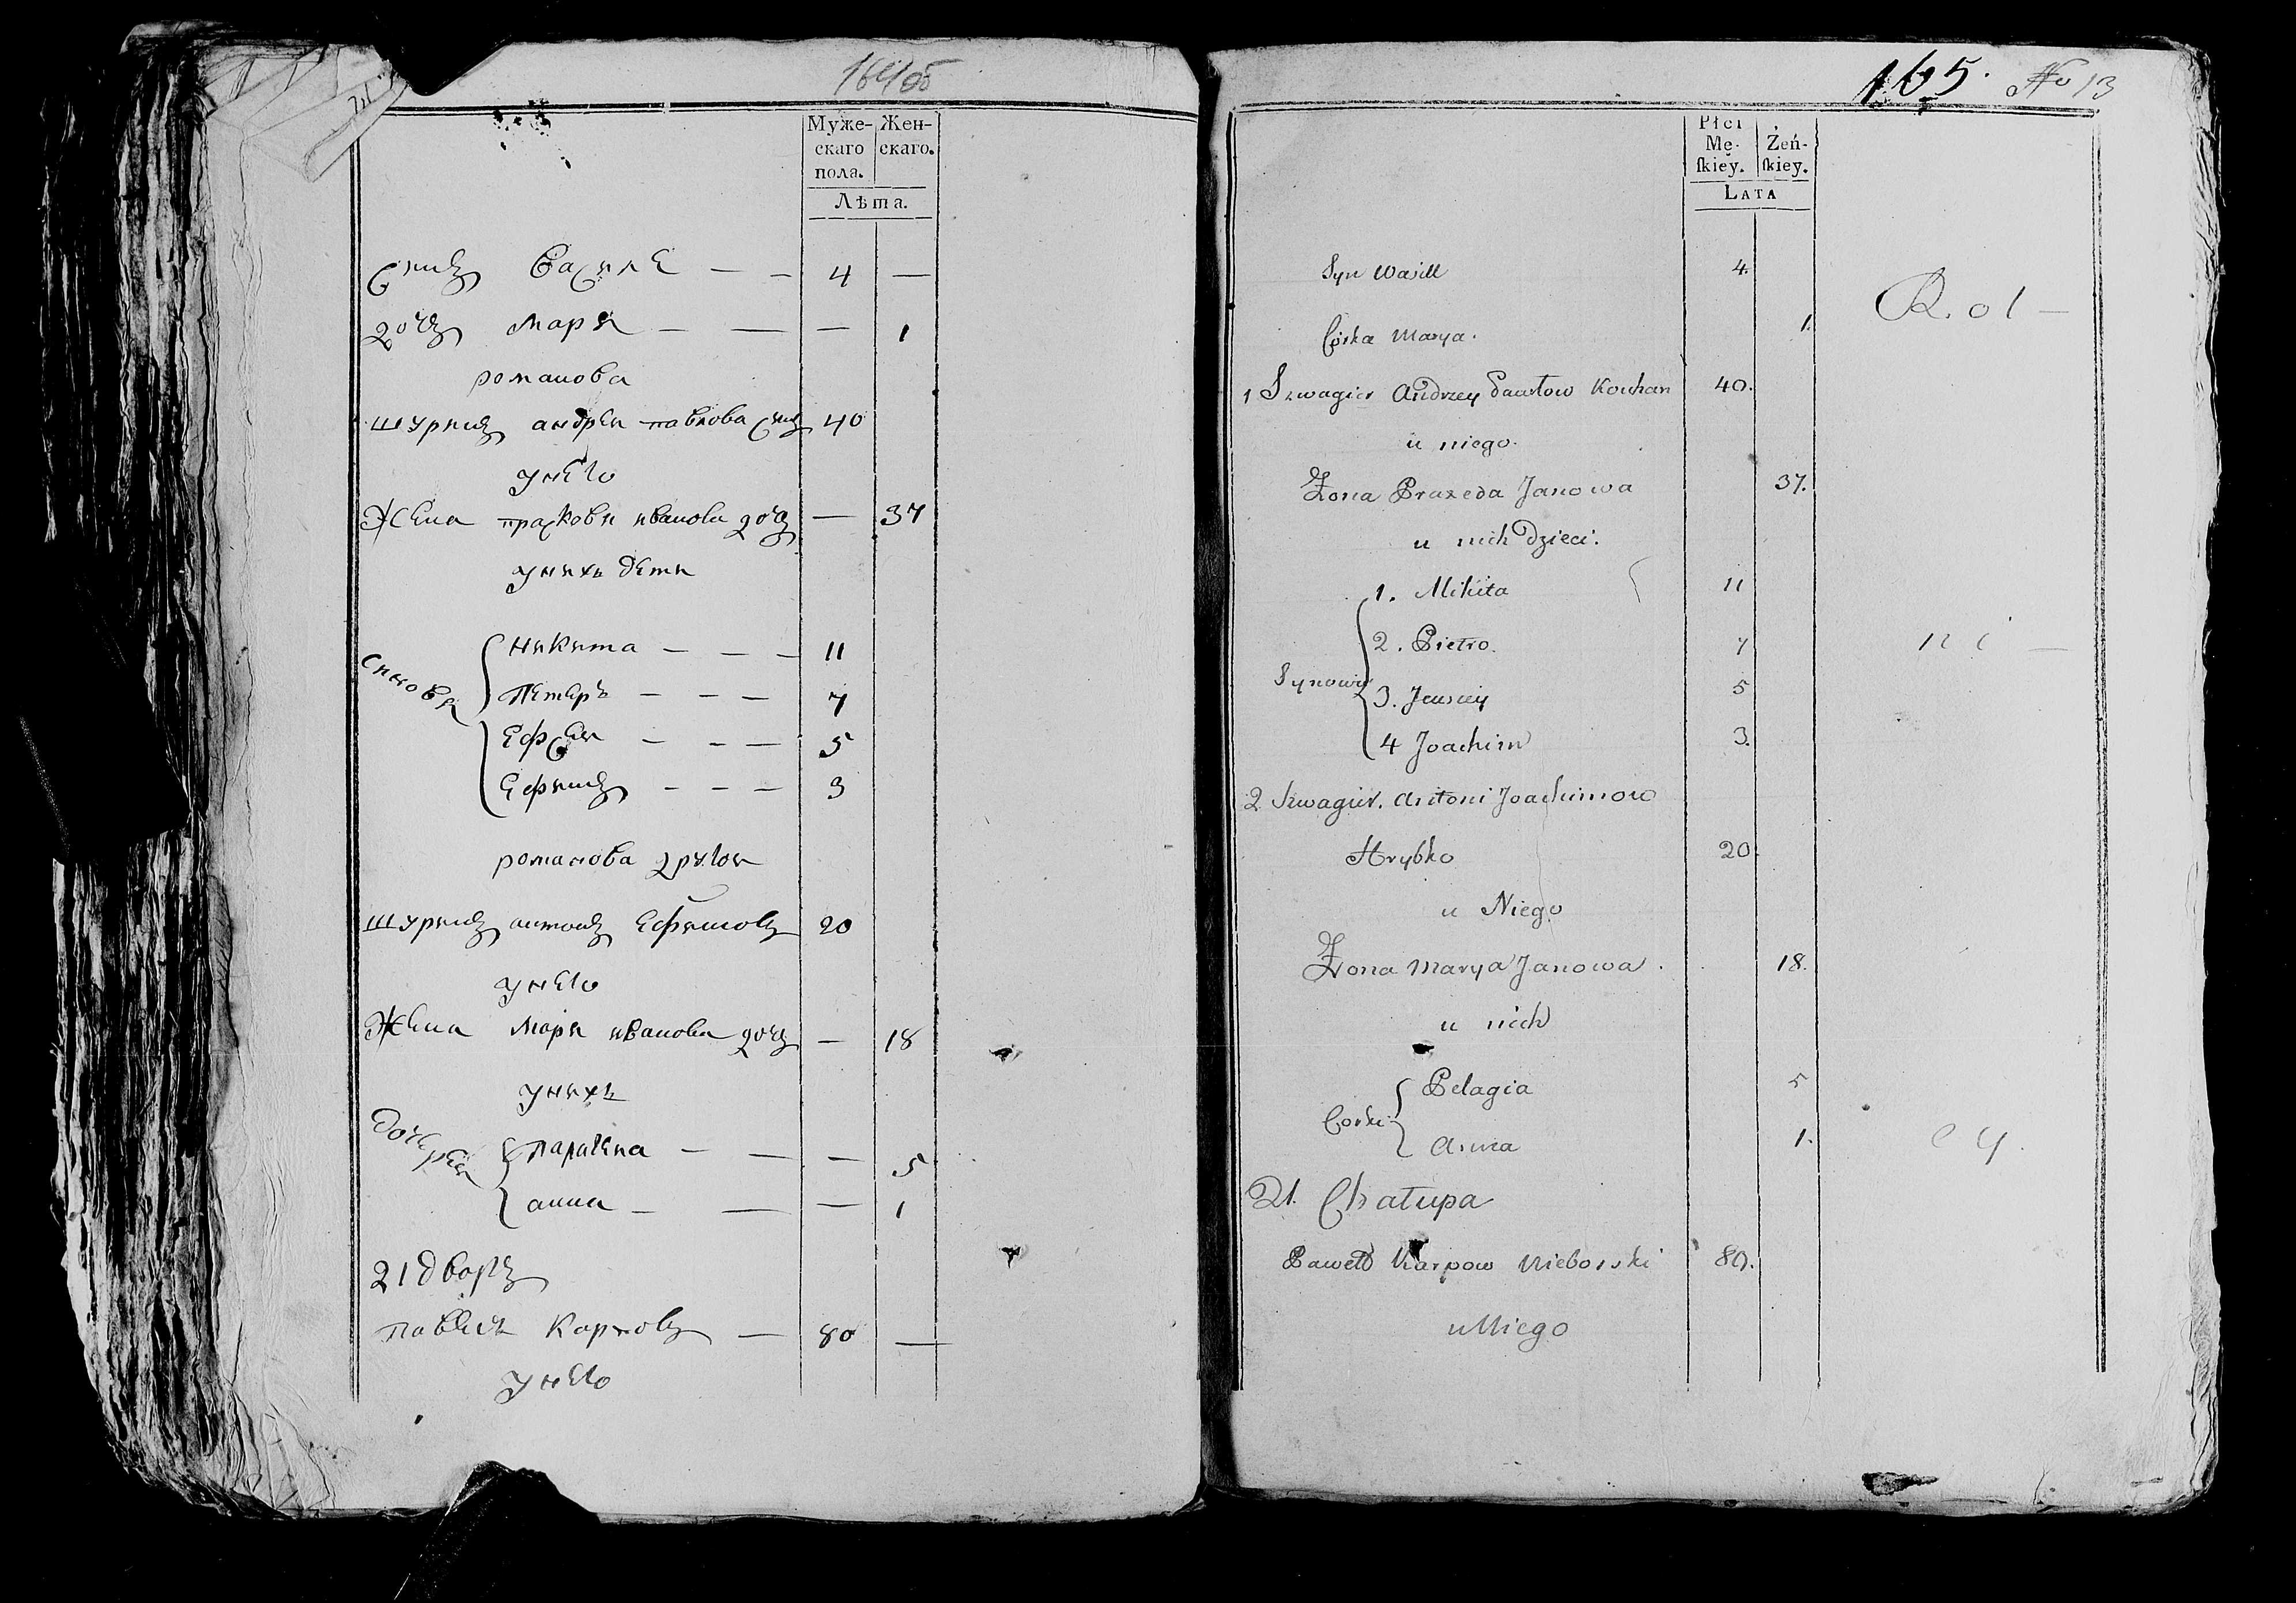 164об
Муже- Жен-
скаго скаго.
пола.
Лѣта.
Сынъ Василе — — 4 —
дочь Маря — — — 1
романова
шуринъ андрей павлова сынъ 40
унего
Жена прасковя иванова дочь — 37
унихъ дети
сыновя
никита — — — 11
Петеръ — — — 7
Ефсеи — — — 5
Ефимъ — — — 3
романова другои
шуринъ антонъ Ефимовъ 20
унего
Жена Маря иванова дочь — 18
унихъ
дочерея
Парасена — — — 5
анна — — — 1
21 дворъ
павелъ Карповъ — 80 —
унего
165. No 13
Płci
Mę- Żeń-
ſkiey. ſkiey.
LATA
Syn Wasill 4.
Córka Marya. 1.
Rol—
1 Szwagier Andrzey Pawłow Kouhan 40.
u niego.
Żona Praxeda Janowa 37.
u nich Dzieci.
Synowie
1. Mikita 11
2. Pietro. 7
ni —
3. Jewsiey 5
4 Joachim 3.
2 Szwagier. Antoni Joachimow
Hrybko 20.
u Niego
Żona Marya Janowa. 18.
u nich
Corki
Pelagia 5
Anna 1.
cy.
21. Chałupa
Paweł Karpow Nieborski 80.
u Niego